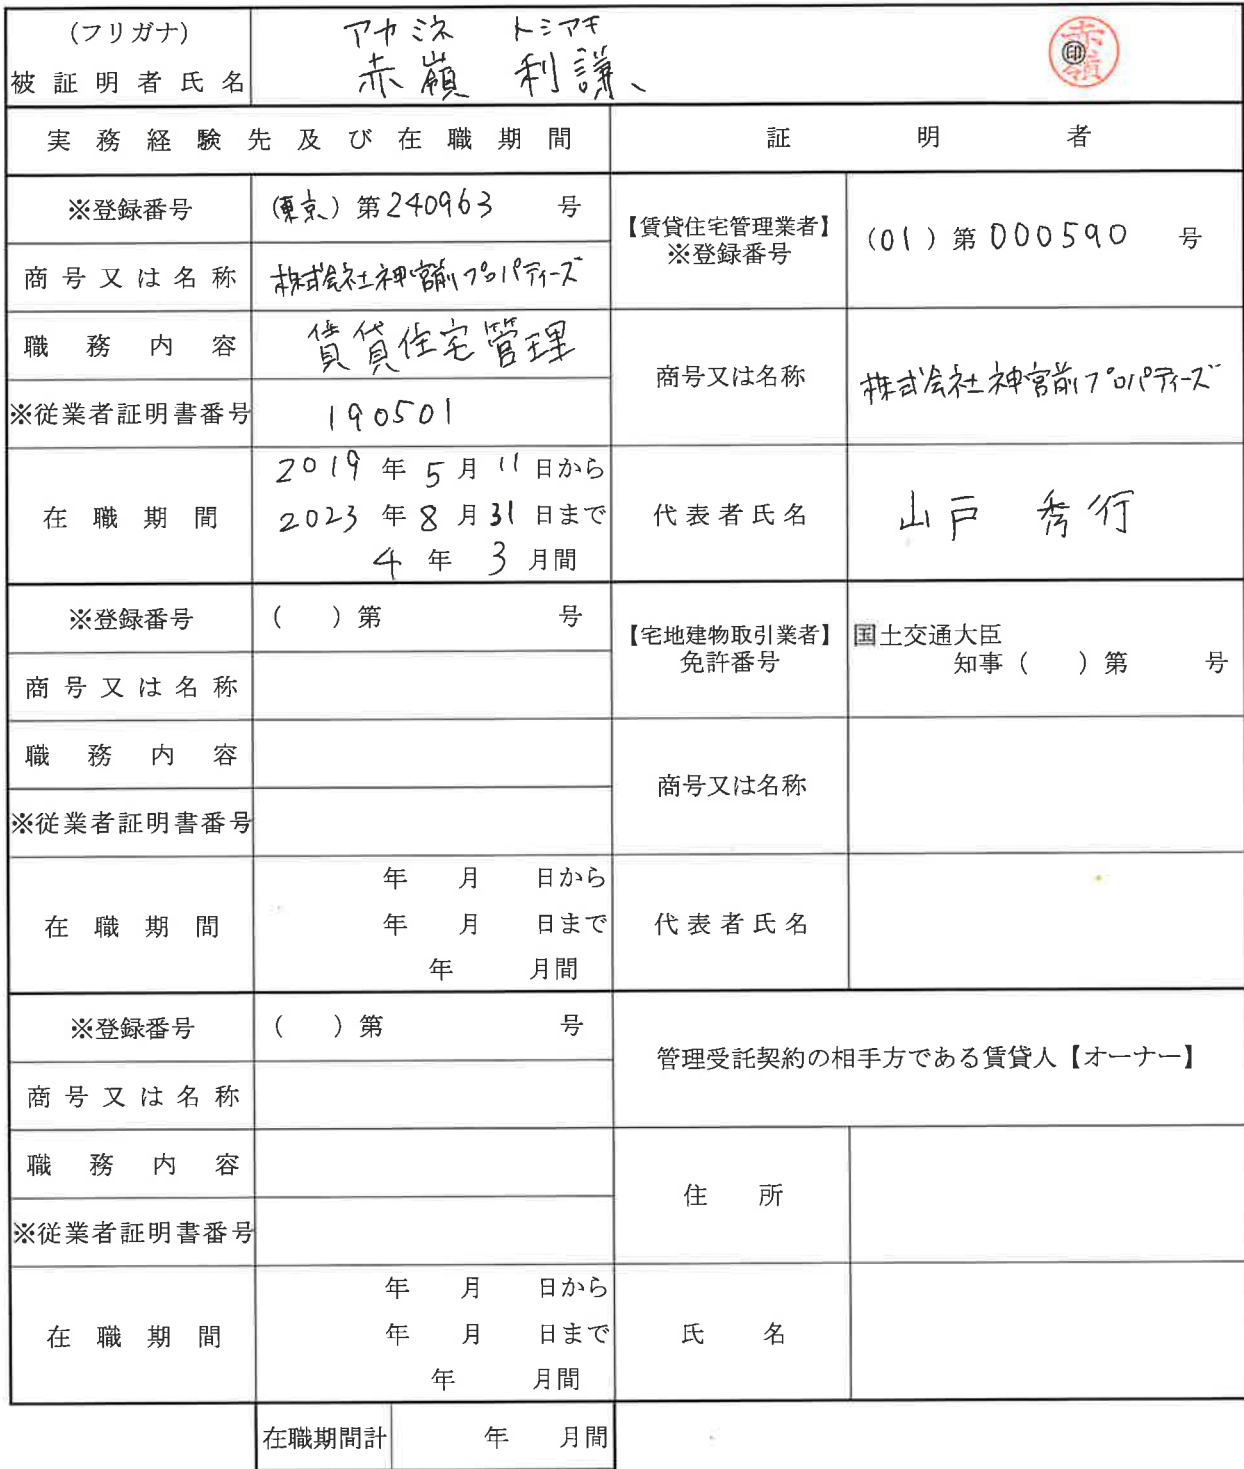 (フリガナ) アカミネ トシアキ
被証明者氏名 赤嶺 利謙、 印 赤嶺
実務経験先及び在職期間 証明者
※登録番号 (東京)第240963号
商号又は名称 株式会社神宮前プロパティーズ
職務内容 賃貸住宅管理
※従業者証明書番号 190501
在職期間 2019年5月11日から
2023年8月31日まで
4年3月間
【賃貸住宅管理業者】
※登録番号 (01)第000590号
商号又は名称 株式会社神宮前プロパティーズ
代表者氏名 山戸 秀行
※登録番号 ( )第 号
商号又は名称
職務内容
※従業者証明書番号
在職期間 年 月 日から
年 月 日まで
年 月間
【宅地建物取引業者】 国土交通大臣
免許番号 知事( )第 号
商号又は名称
代表者氏名
※登録番号 ( )第 号
商号又は名称
職務内容
※従業者証明書番号
在職期間 年 月 日から
年 月 日まで
年 月間
管理受託契約の相手方である賃貸人【オーナー】
住所
氏名
在職期間計 年 月間